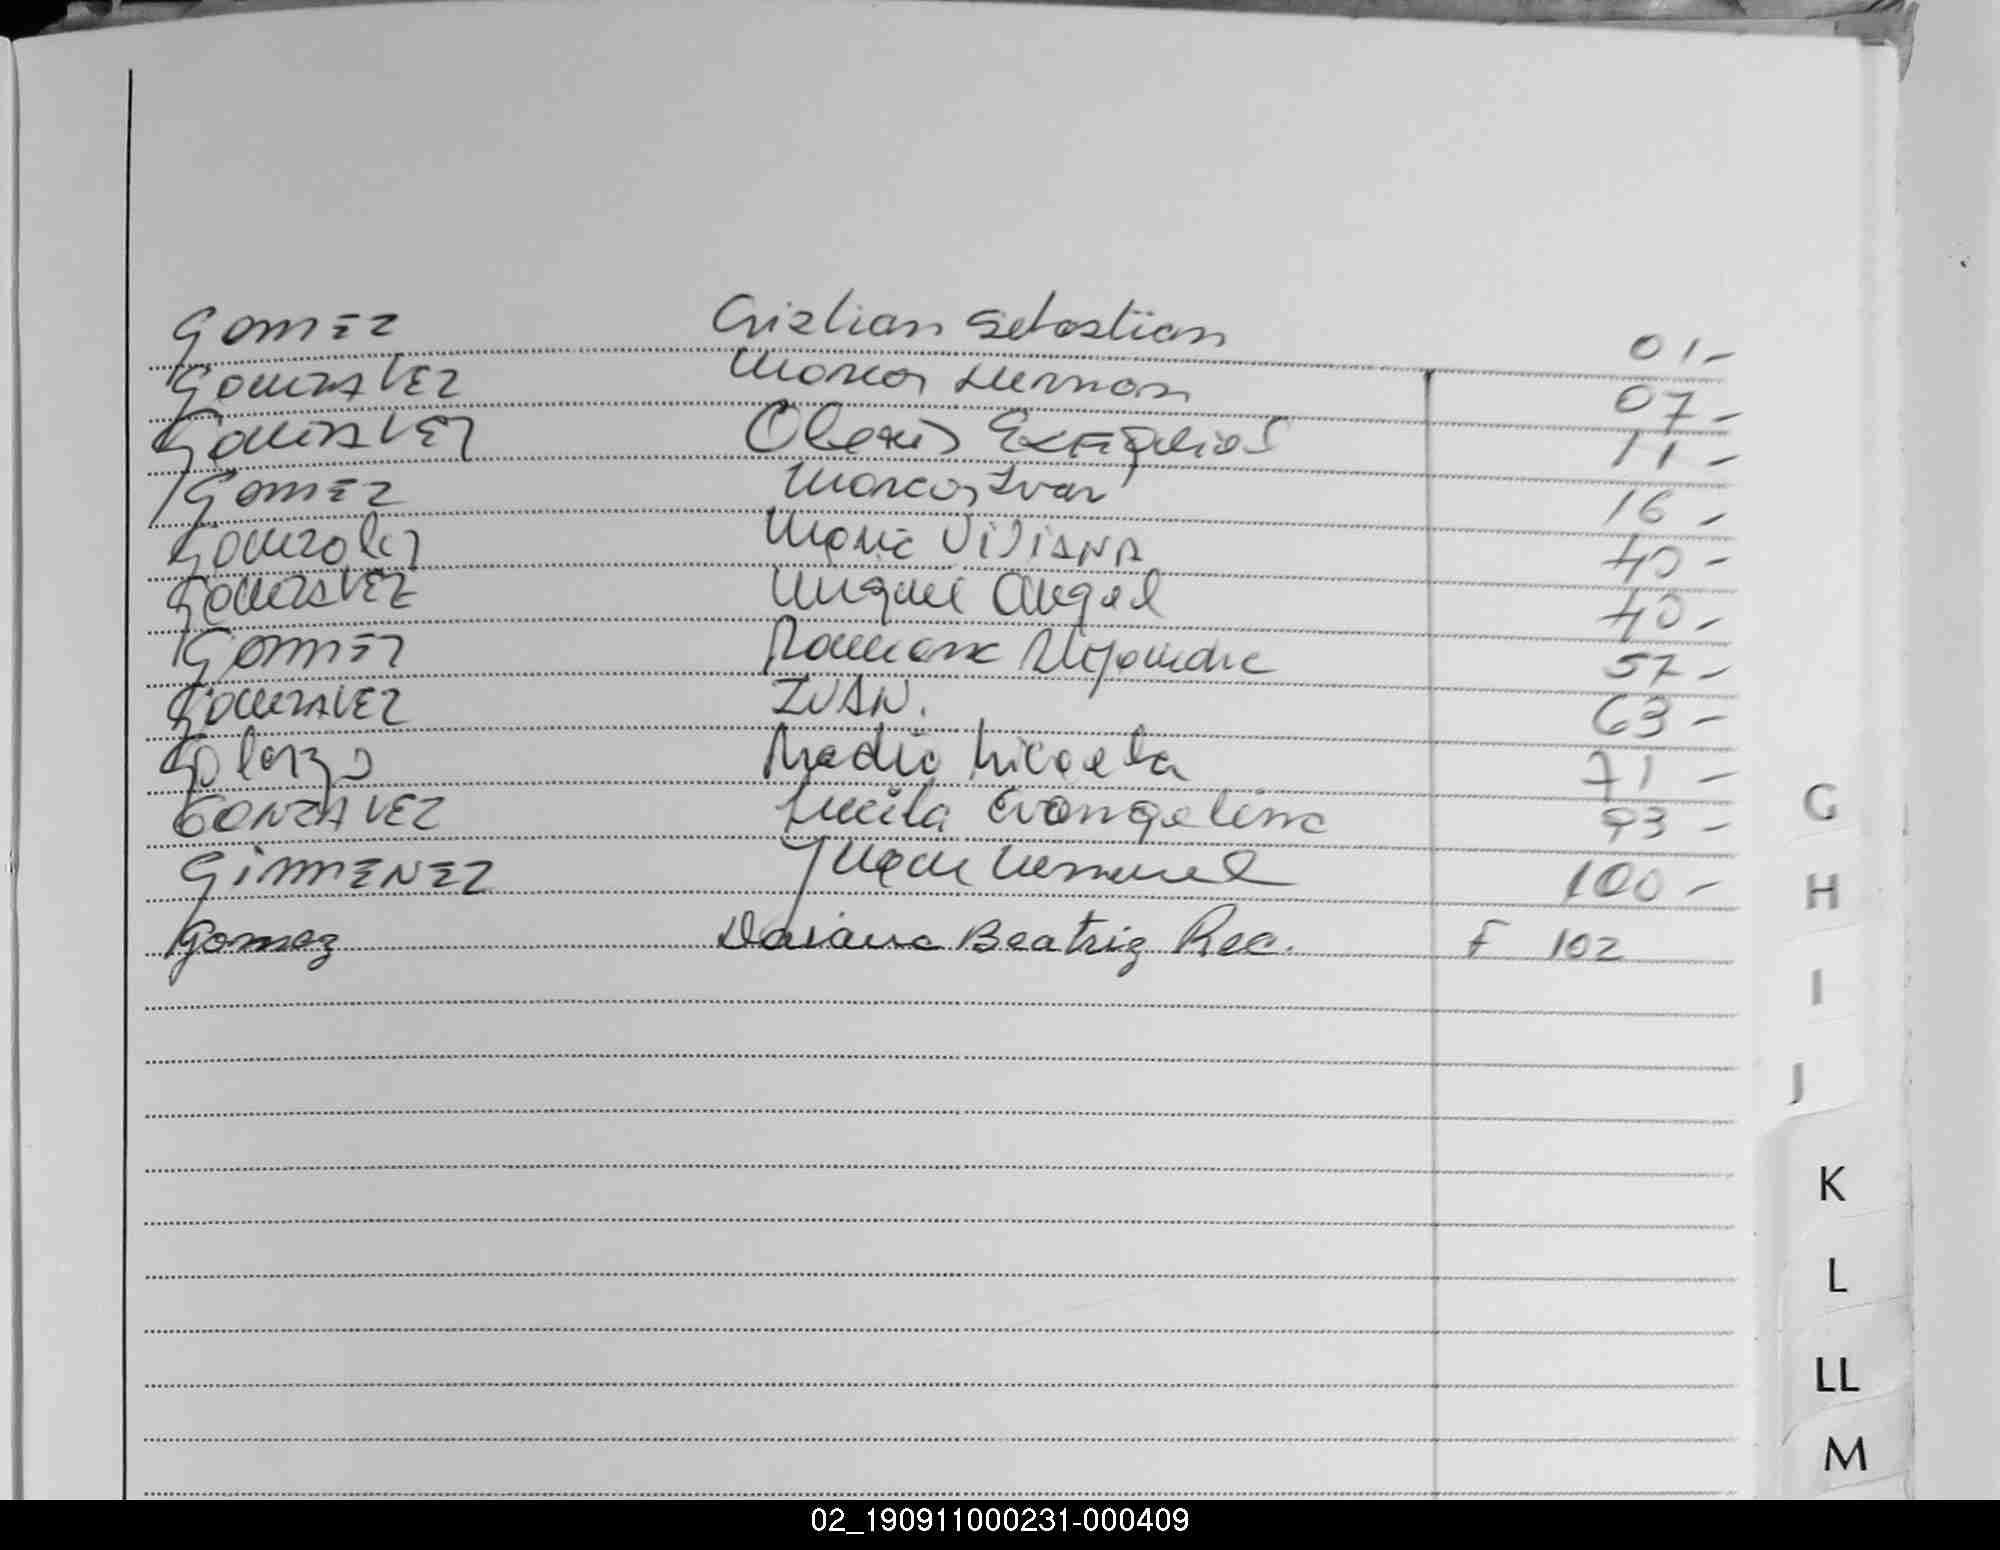 GOMEZ Cristian Sebastian 01-
GONZALEZ Marcos Hernan 07-
GONZALEZ Alexis Exequiel 11-
GOMEZ Marcos Ivan 16-
Gonzalez Maria ViViANA 40-
GONZALEZ Miguel Angel 40-
GOMEZ Romina Alejandra 57-
GONZALEZ IVAN. 63-
Micaela 71-
GONZALEZ Lucila Evangelina 93-
GiMENEZ Juan Manuel 100-
Gomez Daiana Beatriz Rec. F 102
G
H
I
J
K
L
LL
M
02_190911000231-000409